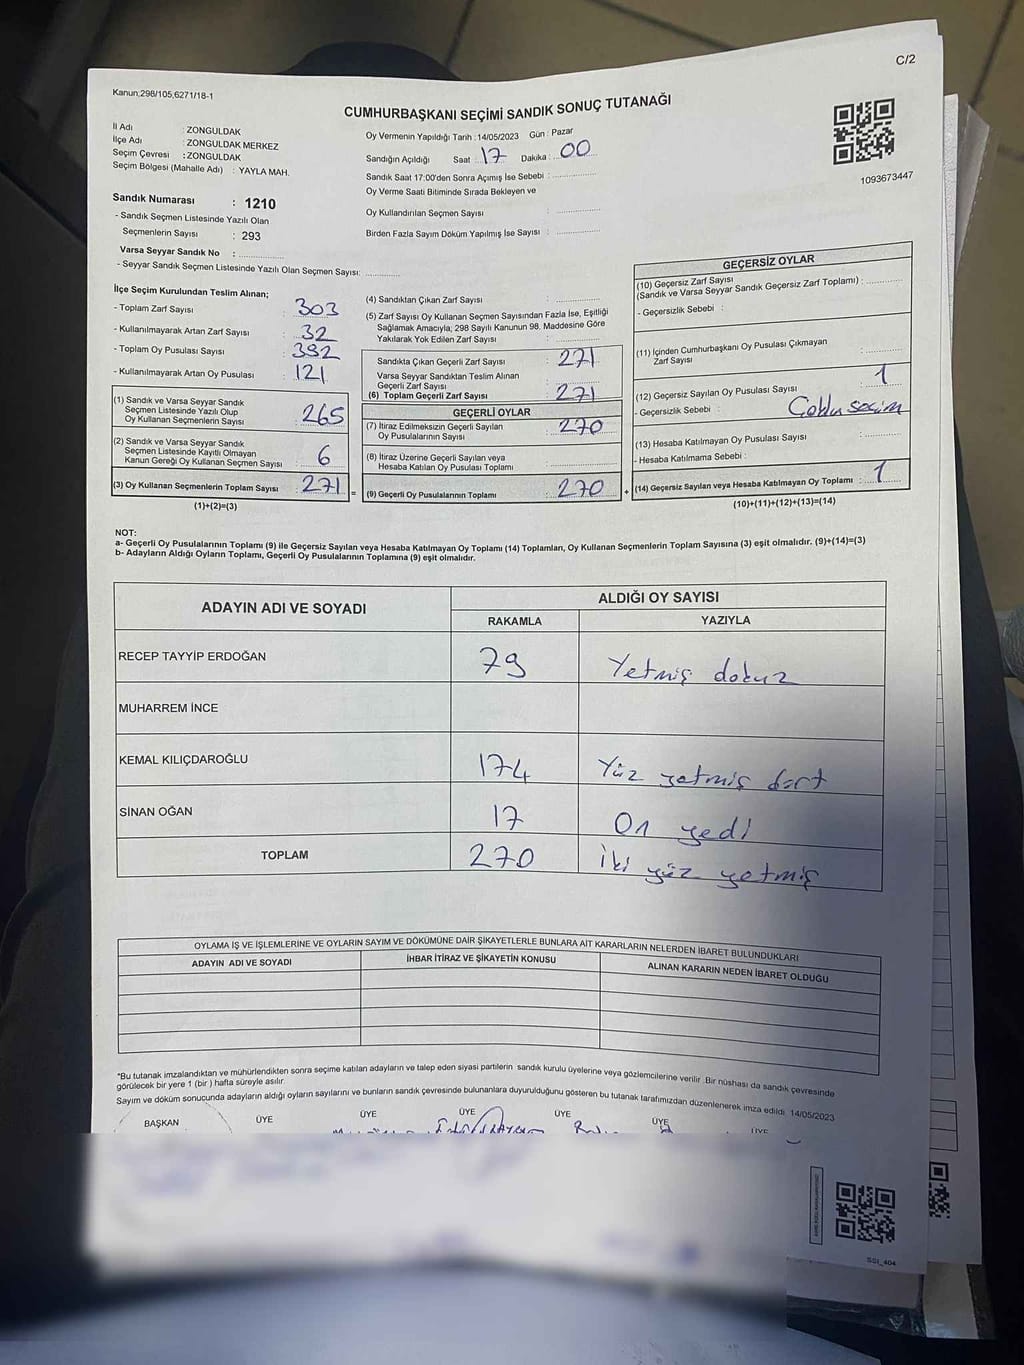 C/2
Kanun,298/105,6271/18-1
CUMHURBAŞKANI SEÇİMİ SANDIK SONUÇ TUTANAĞI
İl Adı : ZONGULDAK
İlçe Adı : ZONGULDAK MERKEZ
Seçim Çevresi : ZONGULDAK
Seçim Bölgesi (Mahalle Adı) : YAYLA MAH.
Oy Vermenin Yapıldığı Tarih : 14/05/2023 Gün : Pazar
Sandığın Açıldığı Saat : 17 Dakika : 00
Sandık Saat 17:00'den Sonra Açımış İse Sebebi :
Oy Verme Saati Bitiminde Sırada Bekleyen ve
Oy Kullandırılan Seçmen Sayısı :
Birden Fazla Sayım Döküm Yapılmış İse Sayısı :
1093673447
Sandık Numarası : 1210
- Sandık Seçmen Listesinde Yazılı Olan
Seçmenlerin Sayısı : 293
Varsa Seyyar Sandık No :
- Seyyar Sandık Seçmen Listesinde Yazılı Olan Seçmen Sayısı:
İlçe Seçim Kurulundan Teslim Alınan;
- Toplam Zarf Sayısı : 303
- Kullanılmayarak Artan Zarf Sayısı : 32
- Toplam Oy Pusulası Sayısı : 392
- Kullanılmayarak Artan Oy Pusulası : 121
(1) Sandık ve Varsa Seyyar Sandık
Seçmen Listesinde Yazılı Olup
Oy Kullanan Seçmenlerin Sayısı : 265
(2) Sandık ve Varsa Seyyar Sandık
Seçmen Listesinde Kayıtlı Olmayan
Kanun Gereği Oy Kullanan Seçmen Sayısı : 6
(3) Oy Kullanan Seçmenlerin Toplam Sayısı : 271 =
(1)+(2)=(3)
(4) Sandıktan Çıkan Zarf Sayısı :
(5) Zarf Sayısı Oy Kullanan Seçmen Sayısından Fazla İse, Eşitliği
Sağlamak Amacıyla; 298 Sayılı Kanunun 98. Maddesine Göre
Yakılarak Yok Edilen Zarf Sayısı :
Sandıkta Çıkan Geçerli Zarf Sayısı : 271
Varsa Seyyar Sandıktan Teslim Alınan
Geçerli Zarf Sayısı :
(6) Toplam Geçerli Zarf Sayısı : 271
GEÇERLİ OYLAR
(7) İtiraz Edilmeksizin Geçerli Sayılan
Oy Pusulalarının Sayısı : 270
(8) İtiraz Üzerine Geçerli Sayılan veya
Hesaba Katılan Oy Pusulası Toplamı :
(9) Geçerli Oy Pusulalarının Toplamı : 270 +
GEÇERSİZ OYLAR
(10) Geçersiz Zarf Sayısı
(Sandık ve Varsa Seyyar Sandık Geçersiz Zarf Toplamı) :
- Geçersizlik Sebebi :
(11) İçinden Cumhurbaşkanı Oy Pusulası Çıkmayan
Zarf Sayısı :
(12) Geçersiz Sayılan Oy Pusulası Sayısı : 1
- Geçersizlik Sebebi : Çoklu seçim
(13) Hesaba Katılmayan Oy Pusulası Sayısı :
- Hesaba Katılmama Sebebi :
(14) Geçersiz Sayılan veya Hesaba Katılmayan Oy Toplamı : 1
(10)+(11)+(12)+(13)=(14)
NOT:
a- Geçerli Oy Pusulalarının Toplamı (9) ile Geçersiz Sayılan veya Hesaba Katılmayan Oy Toplamı (14) Toplamları, Oy Kullanan Seçmenlerin Toplam Sayısına (3) eşit olmalıdır. (9)+(14)=(3)
b- Adayların Aldığı Oyların Toplamı, Geçerli Oy Pusulalarının Toplamına (9) eşit olmalıdır.
ADAYIN ADI VE SOYADI ALDIĞI OY SAYISI
RAKAMLA YAZIYLA
RECEP TAYYİP ERDOĞAN 79 Yetmiş dokuz
MUHARREM İNCE
KEMAL KILIÇDAROĞLU 174 Yüz yetmiş dört
SİNAN OĞAN 17 On yedi
TOPLAM 270 İki yüz yetmiş
OYLAMA İŞ VE İŞLEMLERİNE VE OYLARIN SAYIM VE DÖKÜMÜNE DAİR ŞİKAYETLERLE BUNLARA AİT KARARLARIN NELERDEN İBARET BULUNDUKLARI
ADAYIN ADI VE SOYADI İHBAR İTİRAZ VE ŞİKAYETİN KONUSU ALINAN KARARIN NEDEN İBARET OLDUĞU
*Bu tutanak imzalandıktan ve mühürlendikten sonra seçime katılan adayların ve talep eden siyasi partilerin sandık kurulu üyelerine veya gözlemcilerine verilir .Bir nüshası da sandık çevresinde
görülecek bir yere 1 (bir ) hafta süreyle asılır.
Sayım ve döküm sonucunda adayların aldığı oyların sayılarını ve bunların sandık çevresinde bulunanlara duyurulduğunu gösteren bu tutanak tarafımızdan düzenlenerek imza edildi 14/05/2023
BAŞKAN ÜYE ÜYE ÜYE ÜYE ÜYE ÜYE
SSI_404